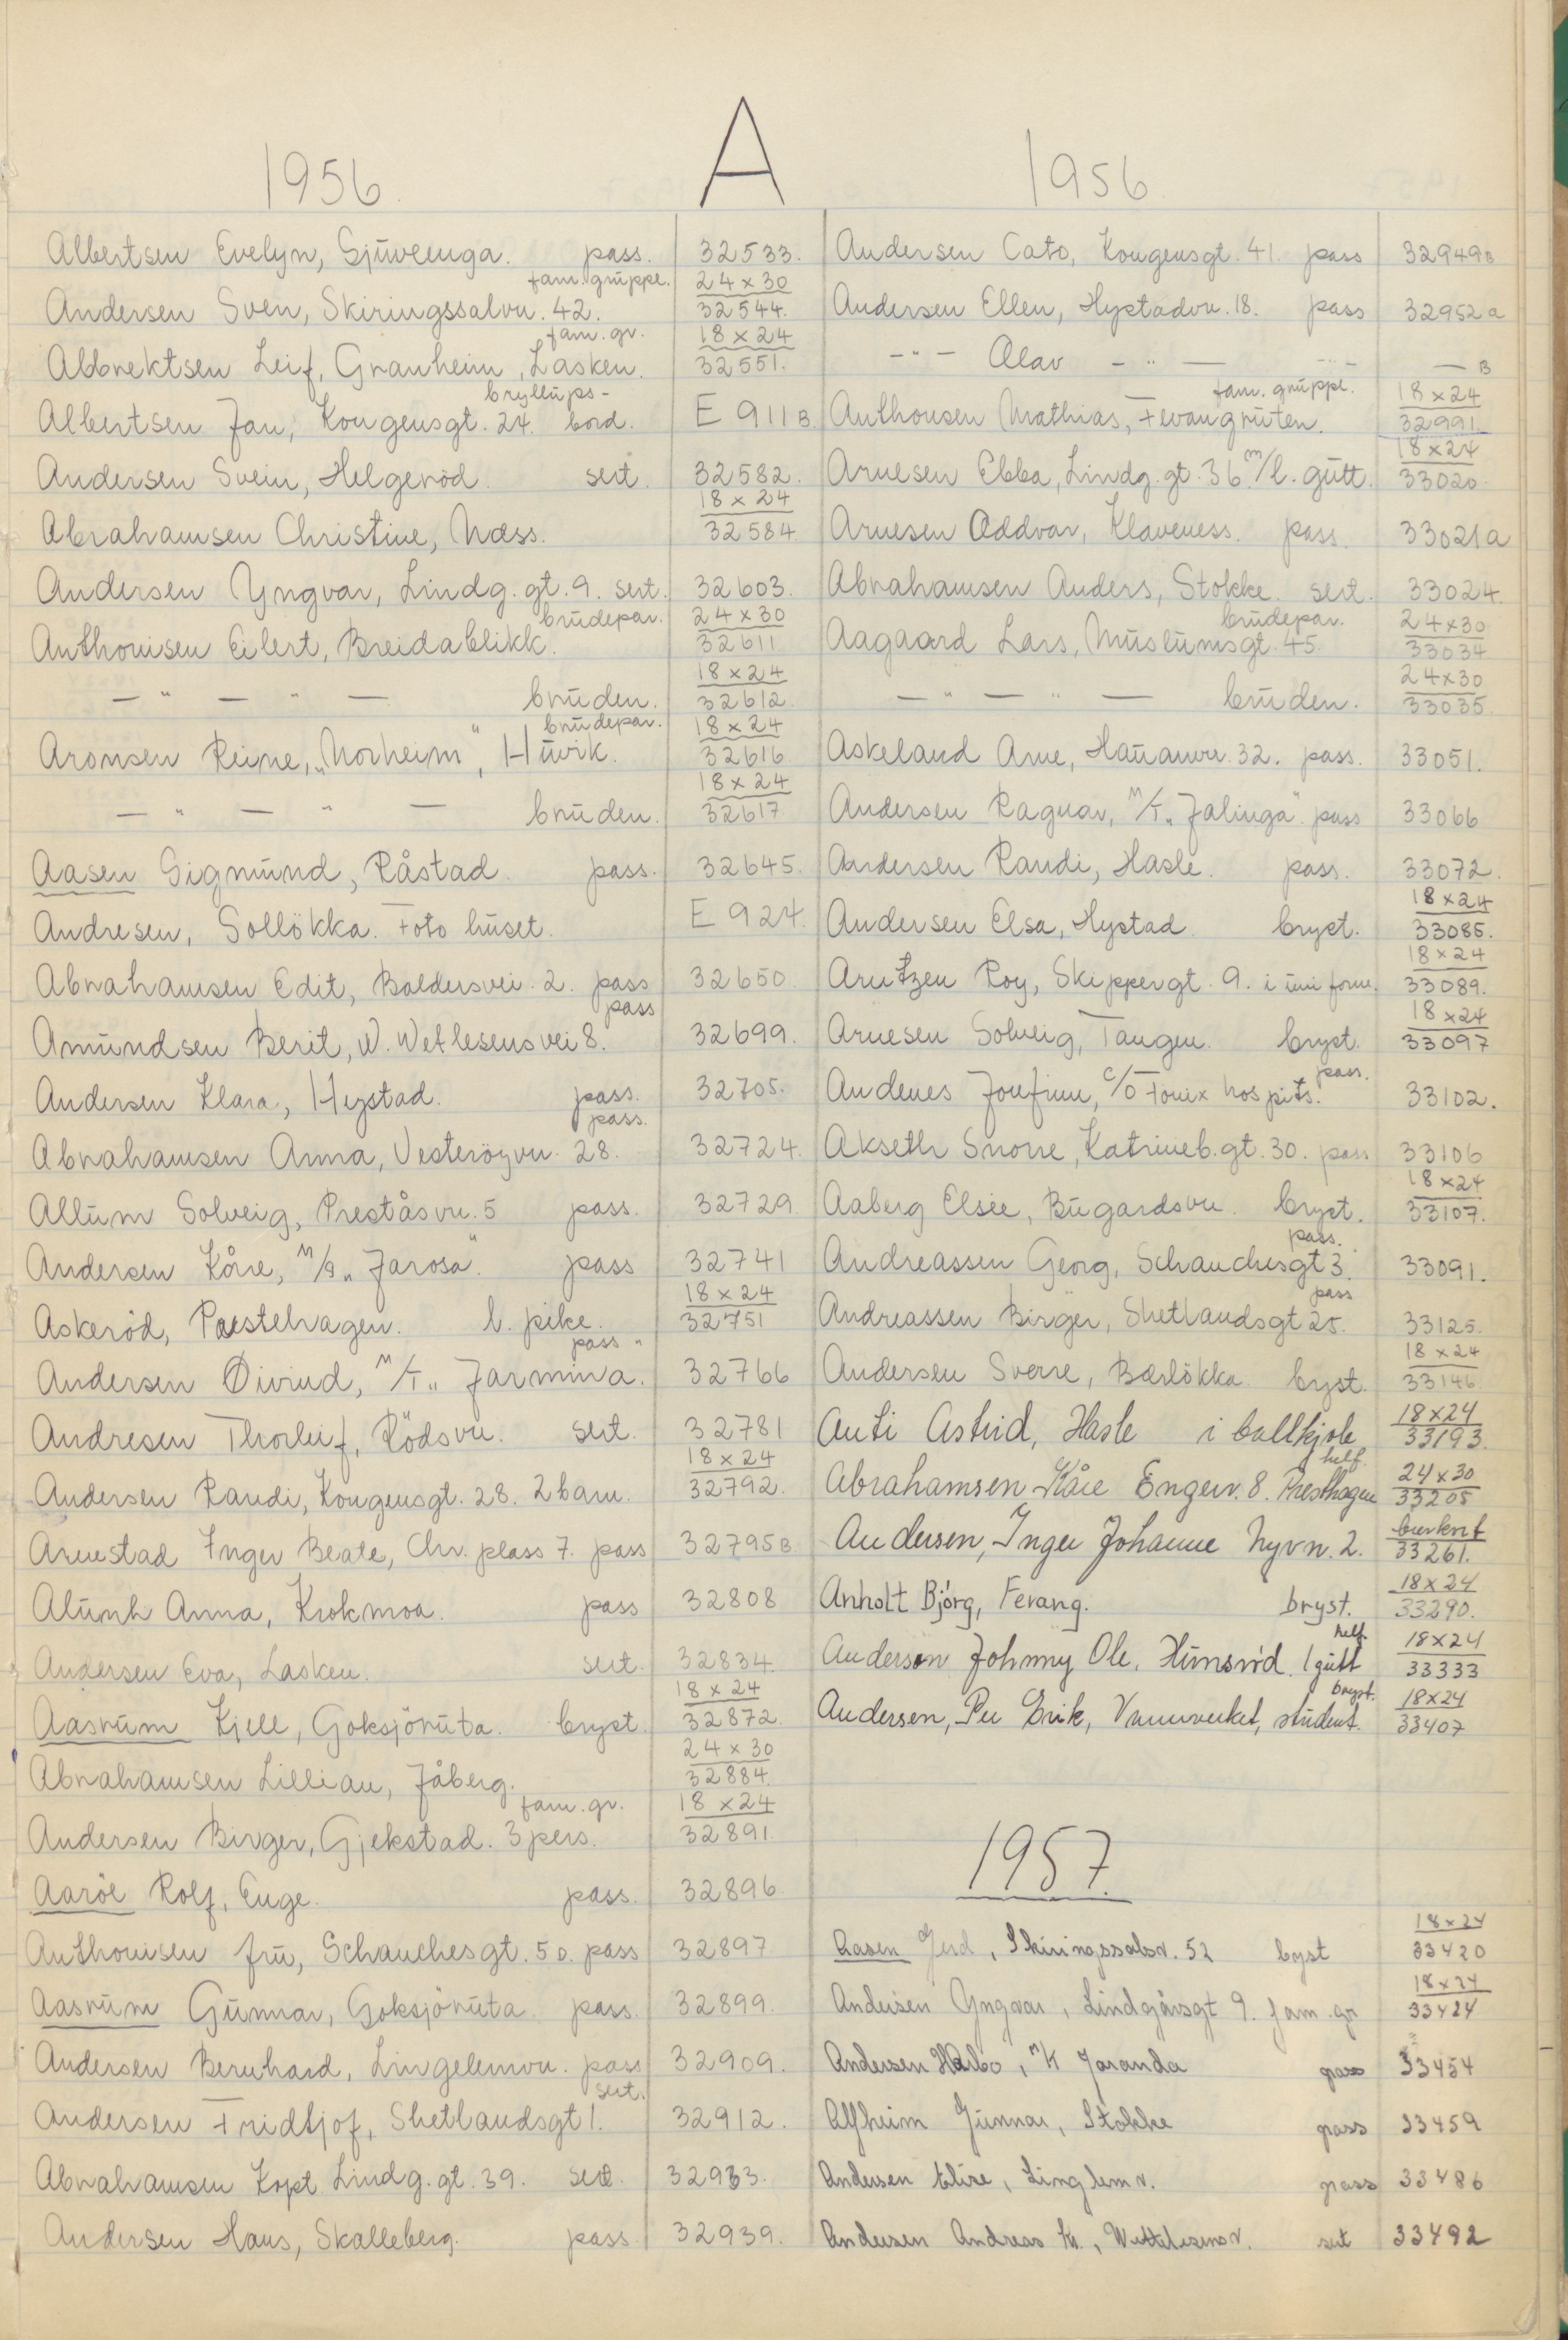 A
1956.
Albertsen Evelyn, Gjüvenga. pass. 32533.
fam. grüppe. 24 x 30
Andersen Sven, Skiringssalvn. 42. 32544.
fam. gr. 18 x 24
Albrektsen Leif, Granheim, Lasken. 32551.
bryllüps-
Albertsen Jan, Kongensgt. 24. bord. E 911 B.
Andersen Svein, Helgeröd. sert. 32582.
18 x 24
Abrahamsen Christine, Næss. 32584
Andersen Yngvar, Lindg. gt. 9. sert. 32603.
brüdepar. 24 x 30
Anthonisen Eilert, Breidablikk. 32611
18 x 24
— " — " — brüden. 32612.
brüdepar. 18 x 24
Aronsen Reine, „Norheim", Hüvik. 32616
18 x 24
— " — " — brüden. 32617
Aasen Sigmünd, Råstad. pass. 32645.
Andresen, Sollökka. Foto hüset. E 924.
Abrahamsen Edit, Baldersvei. 2. pass 32650.
pass
Amündsen Berit, W. Wetlesensvei 8. 32699.
Andersen Klara, Hystad. pass. 32705.
pass.
Abrahamsen Anna, Vesteröyvn. 28. 32724.
Allüm Solveig, Preståsvn. 5 pass. 32729.
Andersen Kåre, M/S „Jarosa" pass 32741
18 x 24
Askeröd, Præstehagen. l. pike. 32751
pass "
Andersen Øivind, M/T „ Jarmina. 32766
Andresen Thorleif, Rödsvn. sert. 32781
18 x 24
Andersen Randi, Kongensgt. 28. 2 barn. 32792.
Arnestad Inger Beate, Chr. plass 7. pass 32795 B
Alünh Anna, Krokmoa. pass 32808
Andersen Eva, Lasken. sert. 32834.
18 x 24
Aasrüm Kjell, Goksjörüta. bryst. 32872.
24 x 30
Abrahamsen Lillian, Jåberg. 32884.
fam. gr. 18 x 24
Andersen Birger, Gjekstad. 3 pers. 32891.
Aaröe Rolf, Enge. pass. 32896
Anthonisen frü, Schanchesgt. 50. pass 32897
Aasrüm Günnar, Goksjörüta. pass. 32899.
Andersen Bernhard, Lingelemvn. pass 32909.
sert.
Andersen Fridtjof, Shetlandsgt 1. 32912.
Abrahamsen Kapt. Lindg. gt. 39. sert. 32933.
Andersen Hans, Skalleberg. pass. 32939.
1956
Andersen Cato, Kongensgt. 41. pass 32949 B
Andersen Ellen, Hystadvn. 18. pass 32952 a
— " — Olav — " — — " — — B
fam. grüppe. 18 x 24
Anthonsen Mathias, Fevangrüten. 32991.
18 x 24
Arnesen Ebba, Lindg. gt. 36. m/l. gütt. 33020.
Arnesen Oddvar, Klaveness. pass. 33021 a
Abrahamsen Anders, Stokke. sert. 33024.
brüdepar. 24 x 30
Aagaard Lars, Müslümsgt. 45. 33034
24 x 30
— " — " — brüden. 33035.
Askeland Arne, Haüanvn. 32. pass. 33051.
Andersen Ragnar, M/T „Jalinga" pass 33066
Andersen Randi, Hasle. pass. 33072.
18 x 24
Andersen Elsa, Hystad. bryst. 33085.
18 x 24
Arntzen Roy, Skippergt. 9. i üniform. 33089.
18 x 24
Arnesen Solveig, Tangen. bryst. 33097
pass.
Andenes Josefine, c/o Fönix hospits. 33102.
Akseth Snorre, Katrineb. gt. 30. pass 33106
18 x 24
Aaberg Elsie, Bügardsvn. bryst. 33107.
pass.
Andreassen Georg, Schanchesgt 3. 33091.
pass
Andreassen Birger, Shetlandsgt 25. 33125.
18 x 24
Andersen Sverre, Bærlökka. bryst. 33146
18 x 24
Anti Astrid, Hasle i ballkjole 33193.
helf. 24 x 30
Abrahamsen Kåre Engev. 8. Presthagen 33205
Andersen, Inger Johanne Nyvn. 2. 33261.
18 x 24
Anholt Björg, Fevang. bryst. 33290.
helf. 18 x 24
Anderson Johnny Ole, Hünsröd. 1 gütt 33333
bryst. 18 x 24
Andersen, Per Erik, Vannverket, stüdent. 33407
1957.
18 x 24
Aasen Gerd, Skiringssalsv. 52 bryst 33420
18 x 24
Andersen Yngvar, Lindgårsgt 9. fam. gr 33424
Andersen Harbo, M/K Jaranda pass 33454
Alfheim Günnar, Stokke pass 33459
Andersen Elise, Linglemv. pass 33486
Andersen Andreas Kr., Wettelsensv. sert 33492